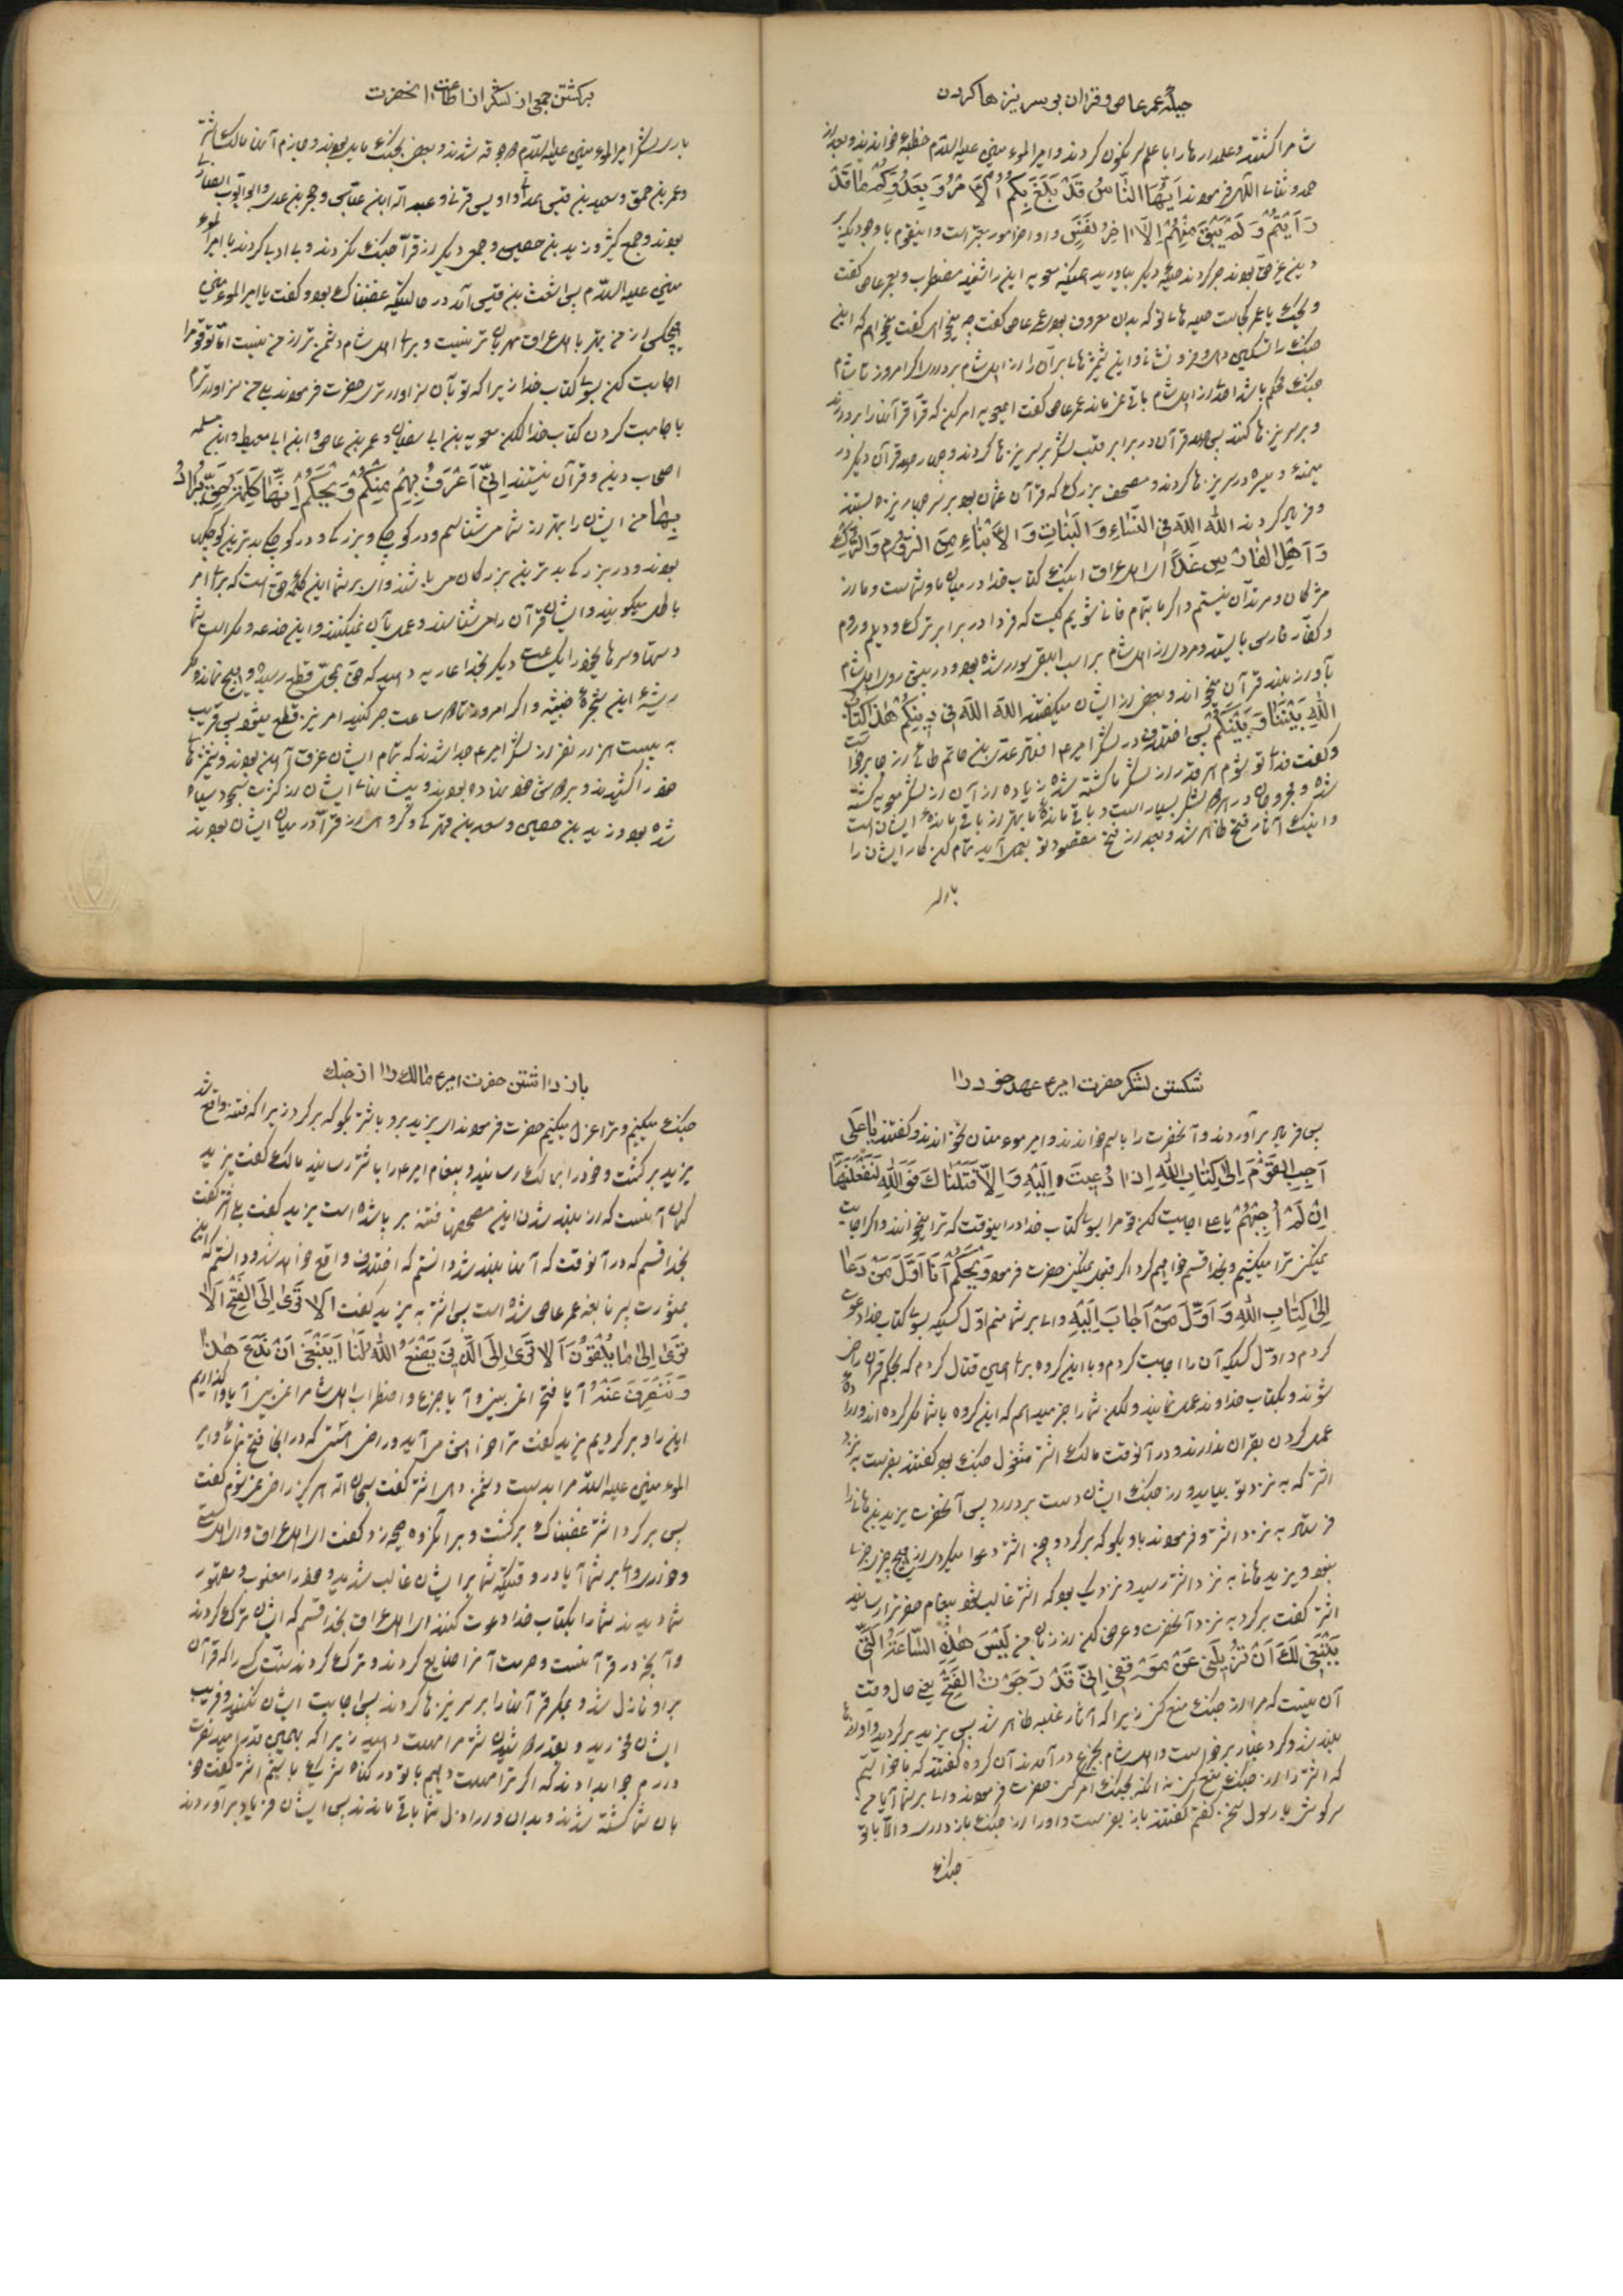 حیلهٔ عمر عاص و قران بر سر نیزها کردن
شام را کشتند و علمدارها را با علم سرنگون کردند و امیر المؤمنین علیه السّلام خطبهٔ خواندند و بعد از
حمد و ثنای الهی فرمودند اَیُّهَا النّاسُ قَدْ بَلَغَ بِکُمُ الْاَمْرُ وَ بِعَدُوِّکُمْ مَا قَدْ
رَاَیْتُمْ وَ لَمْ یَبْقَ مِنْهُمْ اِلّا اخِرُ نَفَسٍ و اواخر امور معتبر است و این قوم با وجودیکه بر
دین غیر حق بودند صبر کردند حیلهٔ دیگر بیاورید همینکه معویه این را شنید مضطرب و بعمر عاص گفت
جنک را تسکین دهی و فرو نشانی و این شمشیرهای بران را از اهل شام بردار اگر امروز تا شام
جنک محکم باشد احدی از اهل شام باقی نمیماند عمر عاص گفت ای معویه امر کن که قرآنها را بردارند
و بر سر نیزها کنند پس صد قرآن در برابر قلب لشکر بر سر نیزها کردند و صد قرآن دیگر در
میمنه و میسره بر سر نیزها کردند و مصحف بزرک که قرآن عثمان بود بر سر چهار نیزه بستند
و فریاد کردند اللهَ اللهَ فِی النِّسَاءِ وَ الْبَنَاتِ وَ الْاَبْنَاءِ مِنَ الرُّومِ وَ التُّرْکِ
وَ اَهْلِ الْفَارِسِ غَداً ای اهل عراق اینک کتاب خدا در میان ما و شماست و ما از
مشرکان و مرتدان نیستیم و اگر ما تمام فانی شویم کیست که فردا در برابر ترک و دیلم و روم
و کفار فارس بایستد و مردی از اهل شام بر اسب ابلقی سوار شده بود و در پیش روی اهل شام
بآواز بلند قرآن میخواند و بعضی از ایشان میگفتند اللهَ اللهَ فِی دِینِکُمْ هٰذَا کِتَابُ
اللهِ بَیْنَنَا وَ بَیْنَکُمْ پس اختلاف در لشکر امیر ع افتاد عدی بن حاتم طائی از جا برخواست
و گفت فدای تو شوم هر قدر از لشکر ما کشته شده زیاده از آن از لشکر معویه کشته
شده و مجروحان در هر دو لشکر بسیار است و باقی ماندهٔ ما بهتر از باقی ماندهٔ ایشان است
و اینک آثار فتح ظاهر شد و بعد از فتح مقصود تو بعمل آید تمام کن کار ایشان را
برکشتن جمعی از لشکر از اطاعت انحضرت
و عمر بن حمق و سعید بن قیس همدانی و اویس قرنی و عبد الله ابن عباس و حجر بن عدی و ابو ایوب انصاری
بودند و جمع کثیر و زید بن حصین و جمعی دیگر از قرّا جنک نکردند و بی ادبی کردند با امیر المؤ
منین علیه السّلام پس اشعث بن قیس آمد در حالتیکه غضبناک بود و گفت یا امیر المؤمنین
هیچکس از من بهتر با اهل عراق مهربان تر نیست و برای اهل شام دشمن تر از من نیست امّا تو قوم را
اجابت کن بسوی کتاب خدا زیرا که تو بآن سزاوارتری حضرت فرمودند بلی من سزاوارترم
باجابت کردن کتاب خدا لکن معویه بن ابی سفیان و عمر بن عاص و ابن ابی معیط و ابن مسلمه
اصحاب دین و قرآن نیستند اِنّی اَعْرَفُ بِهِمْ مِنْکُمْ وَیْحَکُمْ اِنَّهَا کَلِمَةُ حَقٍّ یُرَادُ
بِهَا من ایشان را بهتر از شما میشناسم و در کوچکی و بزرکی و در کوچکی بدترین کوچکان
بودند و در بزرکی بدترین بزرکان میباشند وای بر شما این کلمهٔ حق است که برای امر
باطل میگویند و ایشان قرآن را میشناسند و عمل بآن نمیکنند و این خدعه و مکر است شما
دستها و سرهای خود را یک ساعت دیگر بخدا عاریه دهید که حق بمحل قطع رسید و هیچ نمانده مگر
ریشهٔ این شجرهٔ خبیثه و اگر امروز تا هر ساعت صبر کنید امر نیز قطع میشود پس قریب
به بیست هزار نفر از لشکر امیر ع جدا شدند که تمام ایشان غرق آهن بودند و شمشیرها
خود را کشیدند و بر دوش خود نهاده بودند و پیشانیهای ایشان از کثرت سجود سیاه
شده بود و زید بن حصین و مسعد بن فدکی و گروهی از قرّا در میان ایشان بودند
شکستن لشکر حضرت امیر ع عهد خود را
پس فریاد برآوردند و آنحضرت را باسم خواندند و امیر مؤمنان نخواندند و گفتند یا عَلیُّ
اَجِبِ الْقَوْمَ اِلیٰ کِتَابِ اللهِ اِذا دُعِیتَ اِلَیْهِ وَ اِلّا قَتَلْنَاکَ فَوَ اللهِ لَنَفْعَلَنَّهَا
اِنْ لَمْ تُجِبْهُمْ یا علی اجابت کن قوم را بسوی کتاب خدا در اینوقت که ترا میخوانند و اگر اجابت
نمیکنی ترا میکشیم و بخدا قسم خواهیم کرد اگر قبول نمیکنی حضرت فرمود وَیْحَکُمْ اَنَا اَوَّلُ مَنْ دَعَا
اِلیٰ کِتَابِ اللهِ وَ اَوَّلُ مَنْ اَجَابَ اِلَیْهِ وای بر شما منم اوّل کسیکه بسوی کتاب خدا دعوت
کردم و اوّل کسیکه آن را اجابت کردم و با این گروه برای همین قتال کردم که بحکم قرآن راضی
شوند و بکتاب خداوند عمل نمایند ولکن شما را خبر میدهم که این گروه با شما مکر کرده اند و اراده
عمل کردن بقران ندارند و در آنوقت مالک اشتر مشغول جنک بود گفتند بفرست به نزد
اشتر که به نزد تو بیاید و از جنک ایشان دست بردارد پس آنحضرت یزید بن هانی را
فرستاد به نزد اشتر و فرمودند باو بگو که برگرد
و یزید هانی به نزد اشتر رسید و نزدیک بود که اشتر غالب شود پیغام حضرت را رسانید
اشتر گفت برگرد به نزد آنحضرت و عرض کن از زبان من لَیْسَ هٰذِهِ السّاعَةُ الَّتی
یَنْبَغی لَکَ اَنْ تُزِیلَنی عَنْ مَوْقِفی اِنّی قَدْ رَجَوْتُ الْفَتْحَ یعنی حال وقت
آن نیست که مرا از جنک منع کنی زیرا که آثار غلبه ظاهر شد پس یزید برگردید و آوازها
بلند شد و گرد و غبار برخواست و اهل شام بجزع در آمدند آن گروه گفتند که ما خواستیم
که اشتر را از جنک منع کنی نه آنکه بجنک امر کنی حضرت فرمودند وای بر شما آیا من
سرگوشی با رسول سخن گفتم گفتند باز بفرست و او را از جنک باز دار و الّا با تو
جنک
باز داشتن حضرت امیر ع مالک را از جنک
جنک میکنیم و ترا عزل میکنیم حضرت فرمودند ای یزید برو باشتر بگو که برگرد زیرا که فتنه واقع شد
یزید برگشت و خود را بمالک رسانید و پیغام امیر ع را باشتر رسانید مالک گفت یزید
گمان آنست که از بلند شدن این مصحفها فتنه برپا شده است یزید گفت بلی اشتر گفت
بخدا قسم که در آنوقت که آنها بلند شد دانستم که اختلاف واقع خواهد شد و دانستم که این
بمشورت پسر نابغه عمر عاص شده است پس اشتر به یزید گفت اَلا تَریٰ اِلَی الْفَتْحِ اَلا
تَریٰ اِلیٰ مَا یُلْقُونَ اَلا تَریٰ اِلَی الَّذی یَصْنَعُ اللهُ لَنَا اَیَنْبَغی اَنْ نَدَعَ هٰذَا
وَ نَنْصَرِفَ عَنْهُ آیا فتح را نمی بینی و آیا جزع و اضطراب اهل شام را نمی بینی آیا واگذاریم
این را و برگردیم یزید گفت ترا خوش می آید و راضی هستی که در اینجا فتح نمائی و امیر
المؤمنین علیه السّلام را بدست دشمن دهی اشتر گفت سبحان الله هرگز راضی نمیشوم گفت
پس برگرد اشتر غضبناک برگشت و بر آنگروه صیحه زد گفت ای اهل عراق و ای اهل سستی
و خواری وای بر شما آیا در وقتیکه شما بر ایشان غالب شدید و خود را مغلوب و مقهور
شما دیدند شما را بکتاب خدا دعوت کنند ای اهل عراق بخدا قسم که ایشان ترک کردند
و آنچه در قرآنست و حرمت آنرا ضایع کردند و ترک کردند سنّت کسی را که قرآن
بر او نازل شد و بمکر قرآنها را بر سر نیزها کردند پس اجابت ایشان نکنید و فریب
ایشان مخورید
دارم جواب دادند که اگر ترا مهلت دهیم با تو در گناه شریک باشیم اشتر گفت خو
بان شما کشته شدند و بدان و اراذل شما باقی ماندند پس ایشان فریاد برآوردند